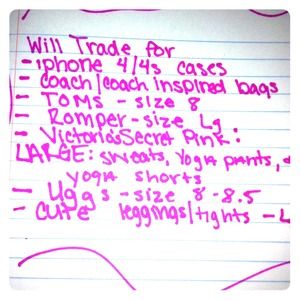 Will Trade for
- iphone 4/4s cases
- coach/coach inspired bags
- TOMS - size 8
- Romper - size Lg
- Victoria's Secret Pink:
LARGE: sweats, yoga pants,
yoga shorts
- Uggs - size 8-8.5
- cute leggings/tights - L